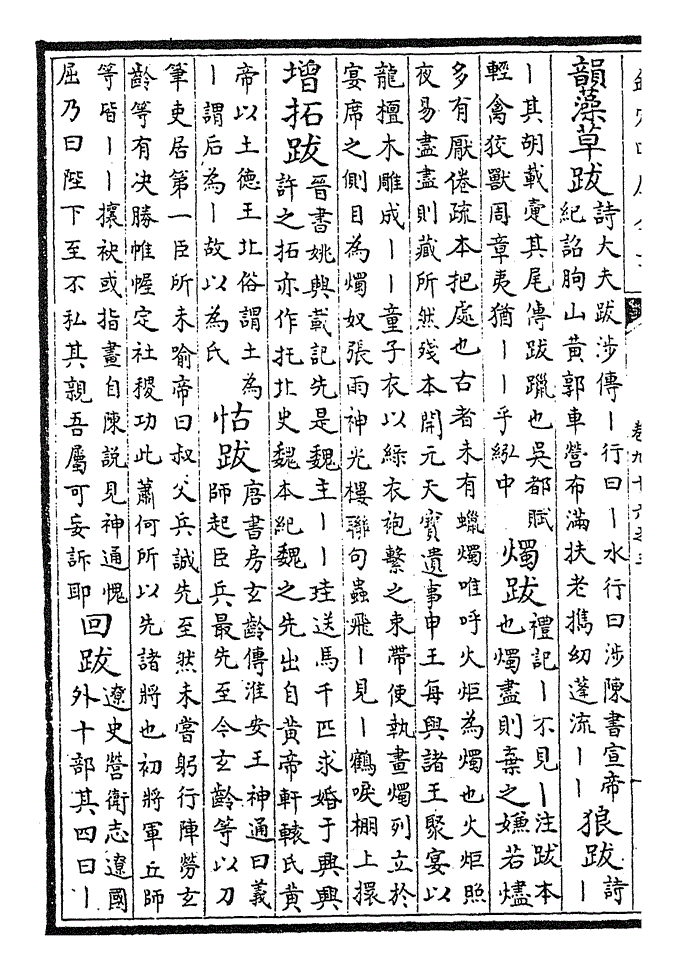 韻藻草跋
詩大夫跋涉傳丨行曰丨水行曰涉陳書宣帝
紀詔朐山黄郭車營布滿扶老攜幼蓬流丨丨
狼跋
詩
丨
丨其胡載疐其尾傳跋躐也吳都賦
輕禽狡獸周章夷猶丨丨乎紭中
燭跋
禮記丨不見丨注跋本
也燭盡則棄之嫌若燼
多有厭倦疏本把處也古者未有蠟燭唯呼火炬為燭也火炬照
夜易盡盡則藏所然殘本開元天寶遺事申王每與諸王聚宴以
龍檀木雕成丨丨童子衣以綠衣袍繫之束帶使執畫燭列立於
宴席之側目為燭奴張雨神光樓聯句蟲飛丨見丨鶴唳棚上擐
增拓跋
晉書姚興載記先是魏主丨丨珪送馬千匹求婚于興興
許之拓亦作托北史魏本紀魏之先出自黄帝軒轅氏黄
帝以土德王北俗謂土為
丨謂后為丨故以為氏
怙跋
唐書房玄齡傳淮安王神通曰義
師起臣兵最先至今玄齡等以刀
筆吏居第一臣所未喻帝曰叔父兵誠先至然未嘗躬行陣勞玄
齡等有决勝帷幄定社稷功此蕭何所以先諸將也初將軍丘師
等皆丨丨攘袂或指畫自陳説見神通愧
屈乃曰陛下至不私其親吾屬可妄訴耶
回跋
遼史營衛志遼國
外十部其四曰丨